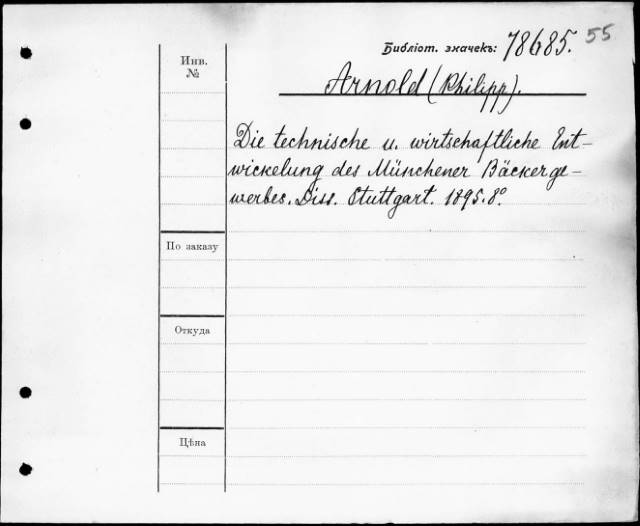 55
Библіот. значекъ: 78685.
Инв.
№
Arnold (Philipp).
Die technische u. wirtschaftliche Ent-
wickelung des Münchener Bäckerge-
werbes. Diss. Stuttgart. 1895. 8°.
По заказу
Откуда
Цѣна